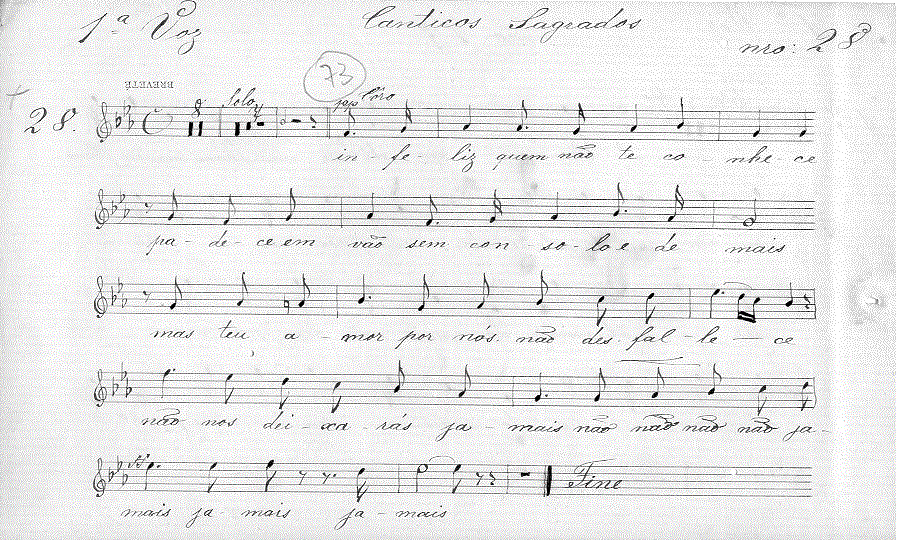 1ª Voz
Canticos Sagrados
nro: 28
73
BREVETÉ
28.
8
Solo
pp Côro
in - fe - liz quem não te co - nhe - ce
pa - de - ce em vão sem con - so - lo e de mais
mas teu a - mor por nós não des - fal - le - ce
não nos dei - xa - rás ja - mais não não não não ja -
ff
mais ja - mais ja - mais
Fine